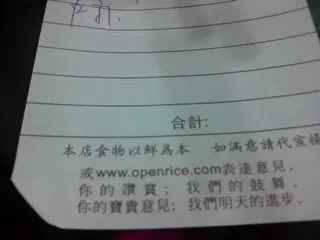 合計:
本店食物以鮮為本 如滿意請代宣揚
或www.openrice.com表達意見.
你的讚賞; 我們的鼓舞.
你的寶貴意見; 我們明天的進步.